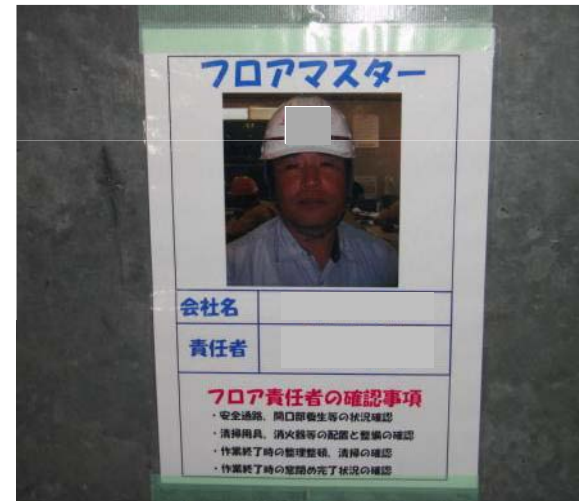 フロアマスター
会社名
責任者
フロア責任者の確認事項
・安全通路、開口部養生等の状況確認
・清掃用具、消火器等の配置と整備の確認
・作業終了時の整理整頓、清掃の確認
・作業終了時の窓閉め完了状況の確認